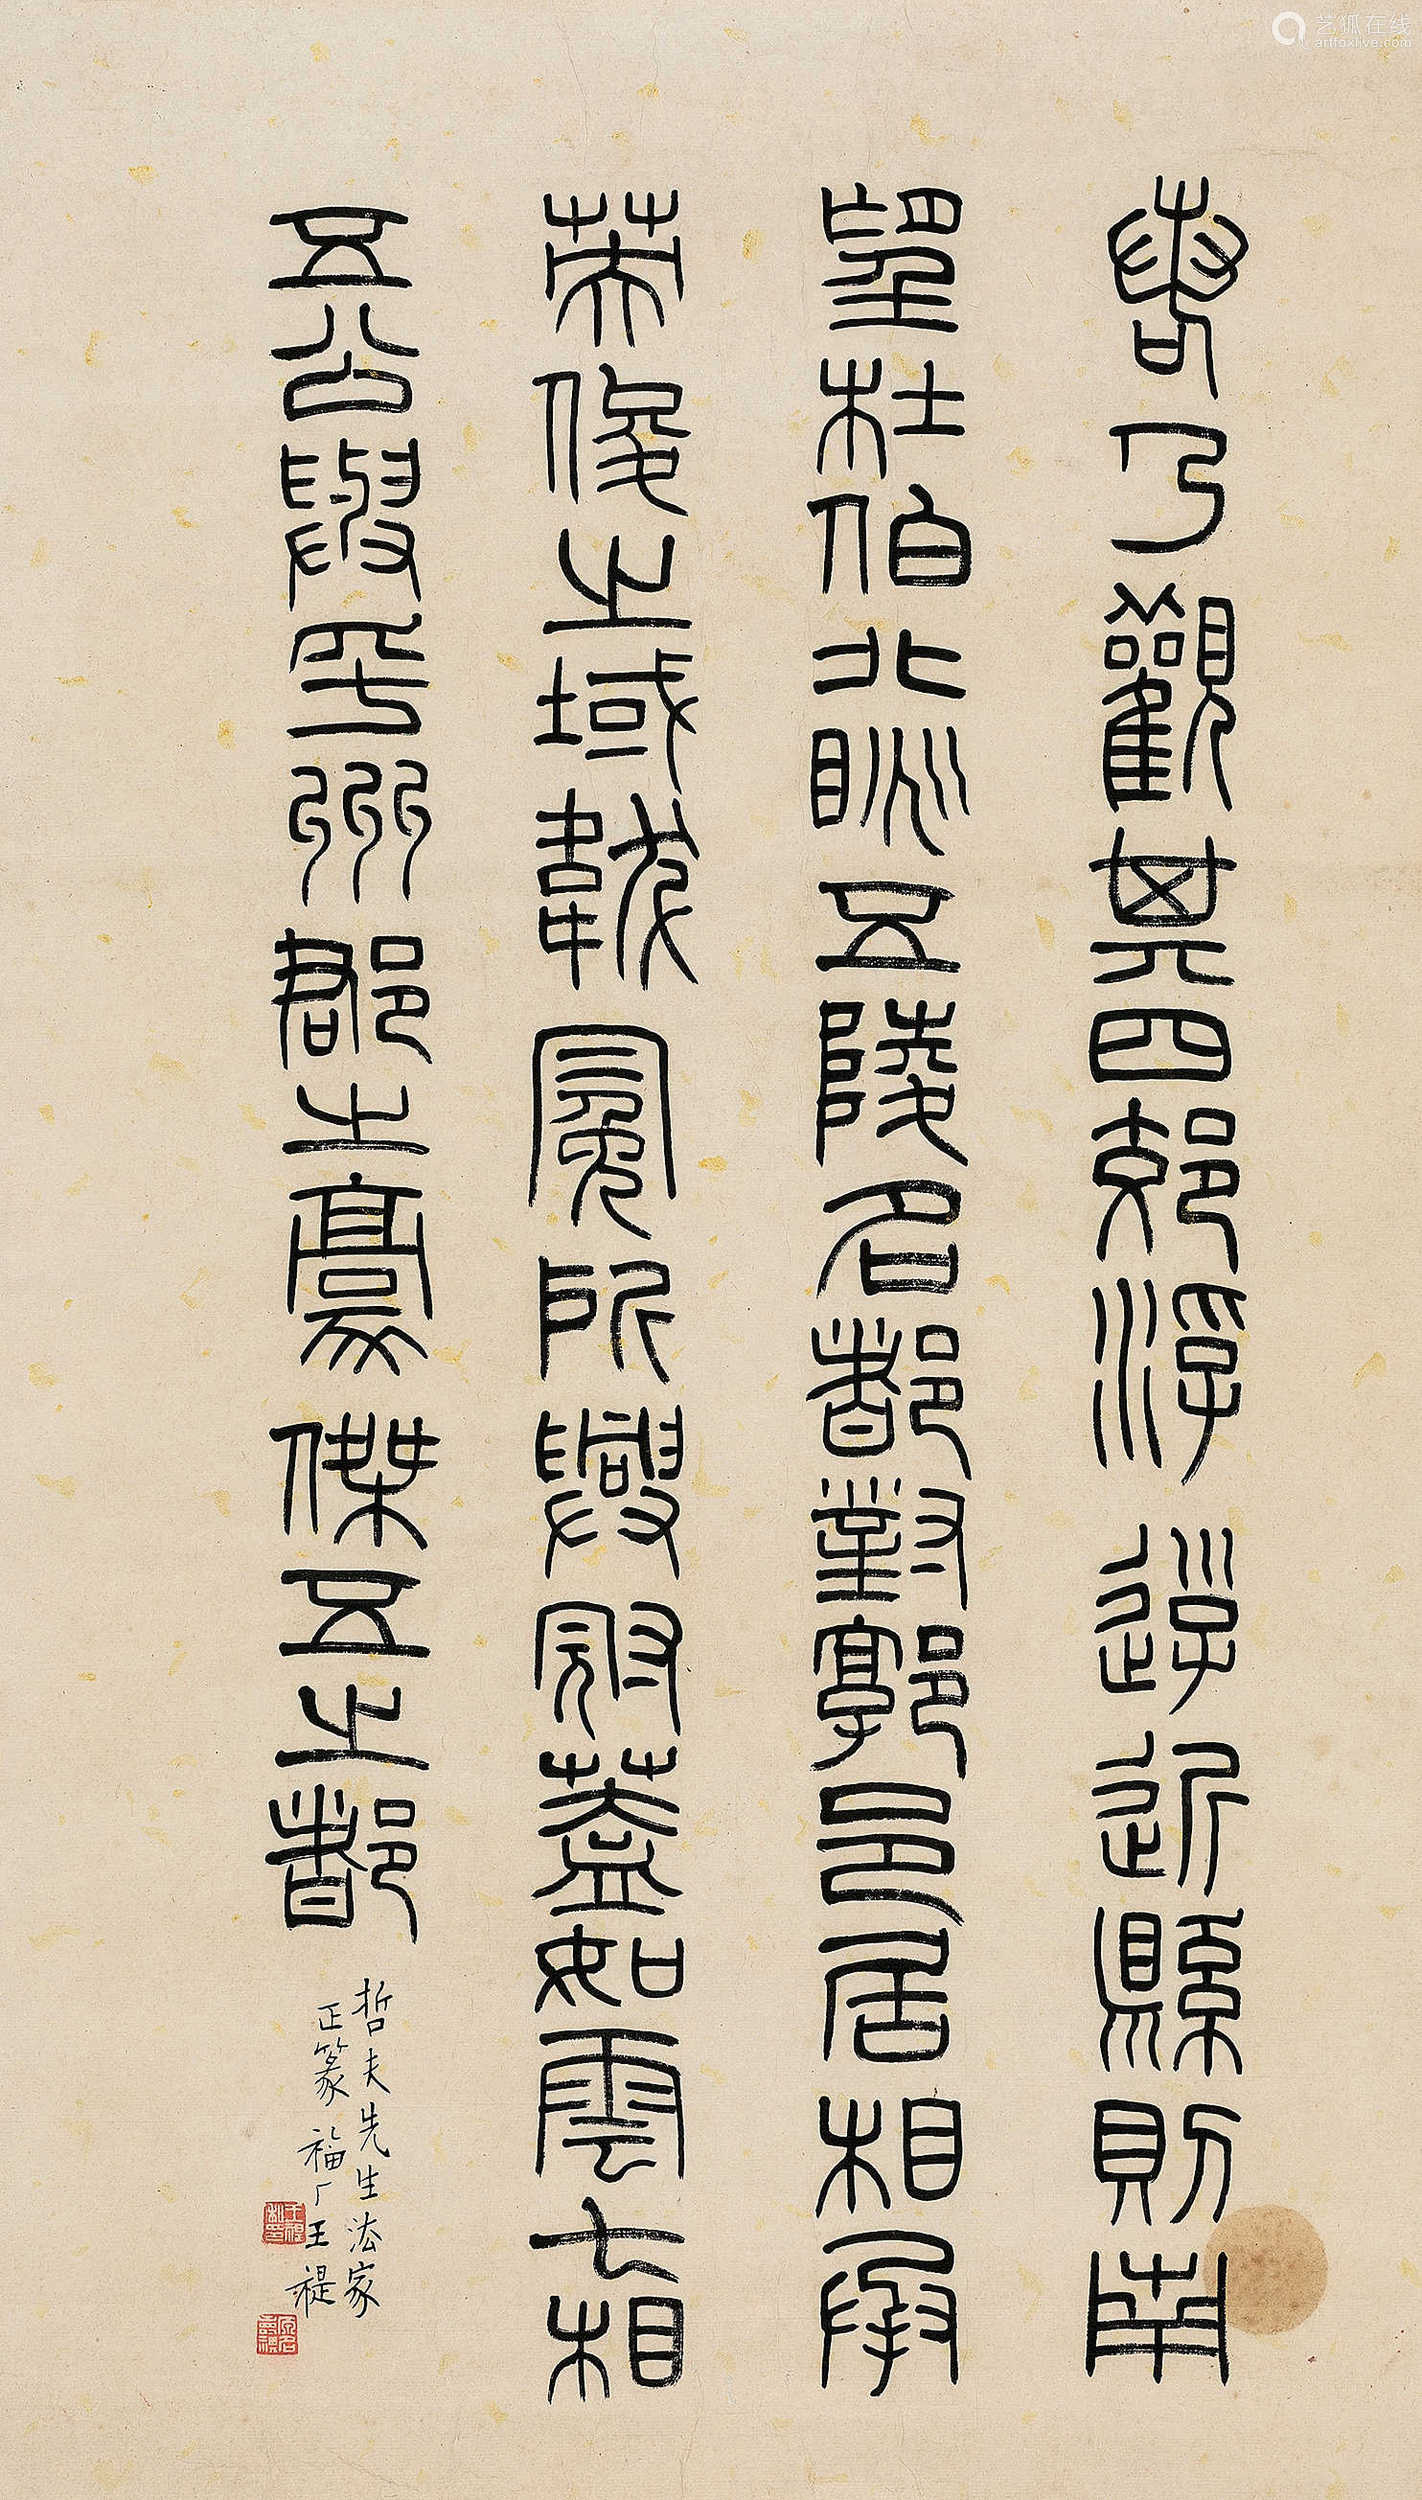 艺狐在线
artfoxlive.com
若乃觀其四郊浮遊近縣則南
望杜伯北眺五陵名都對郭邑居相承
英俊之域韍冕所興冠蓋如雲七相
五公與乎州郡之豪傑五之都
哲夫先生法家
正篆福厂王禔
王禔私印